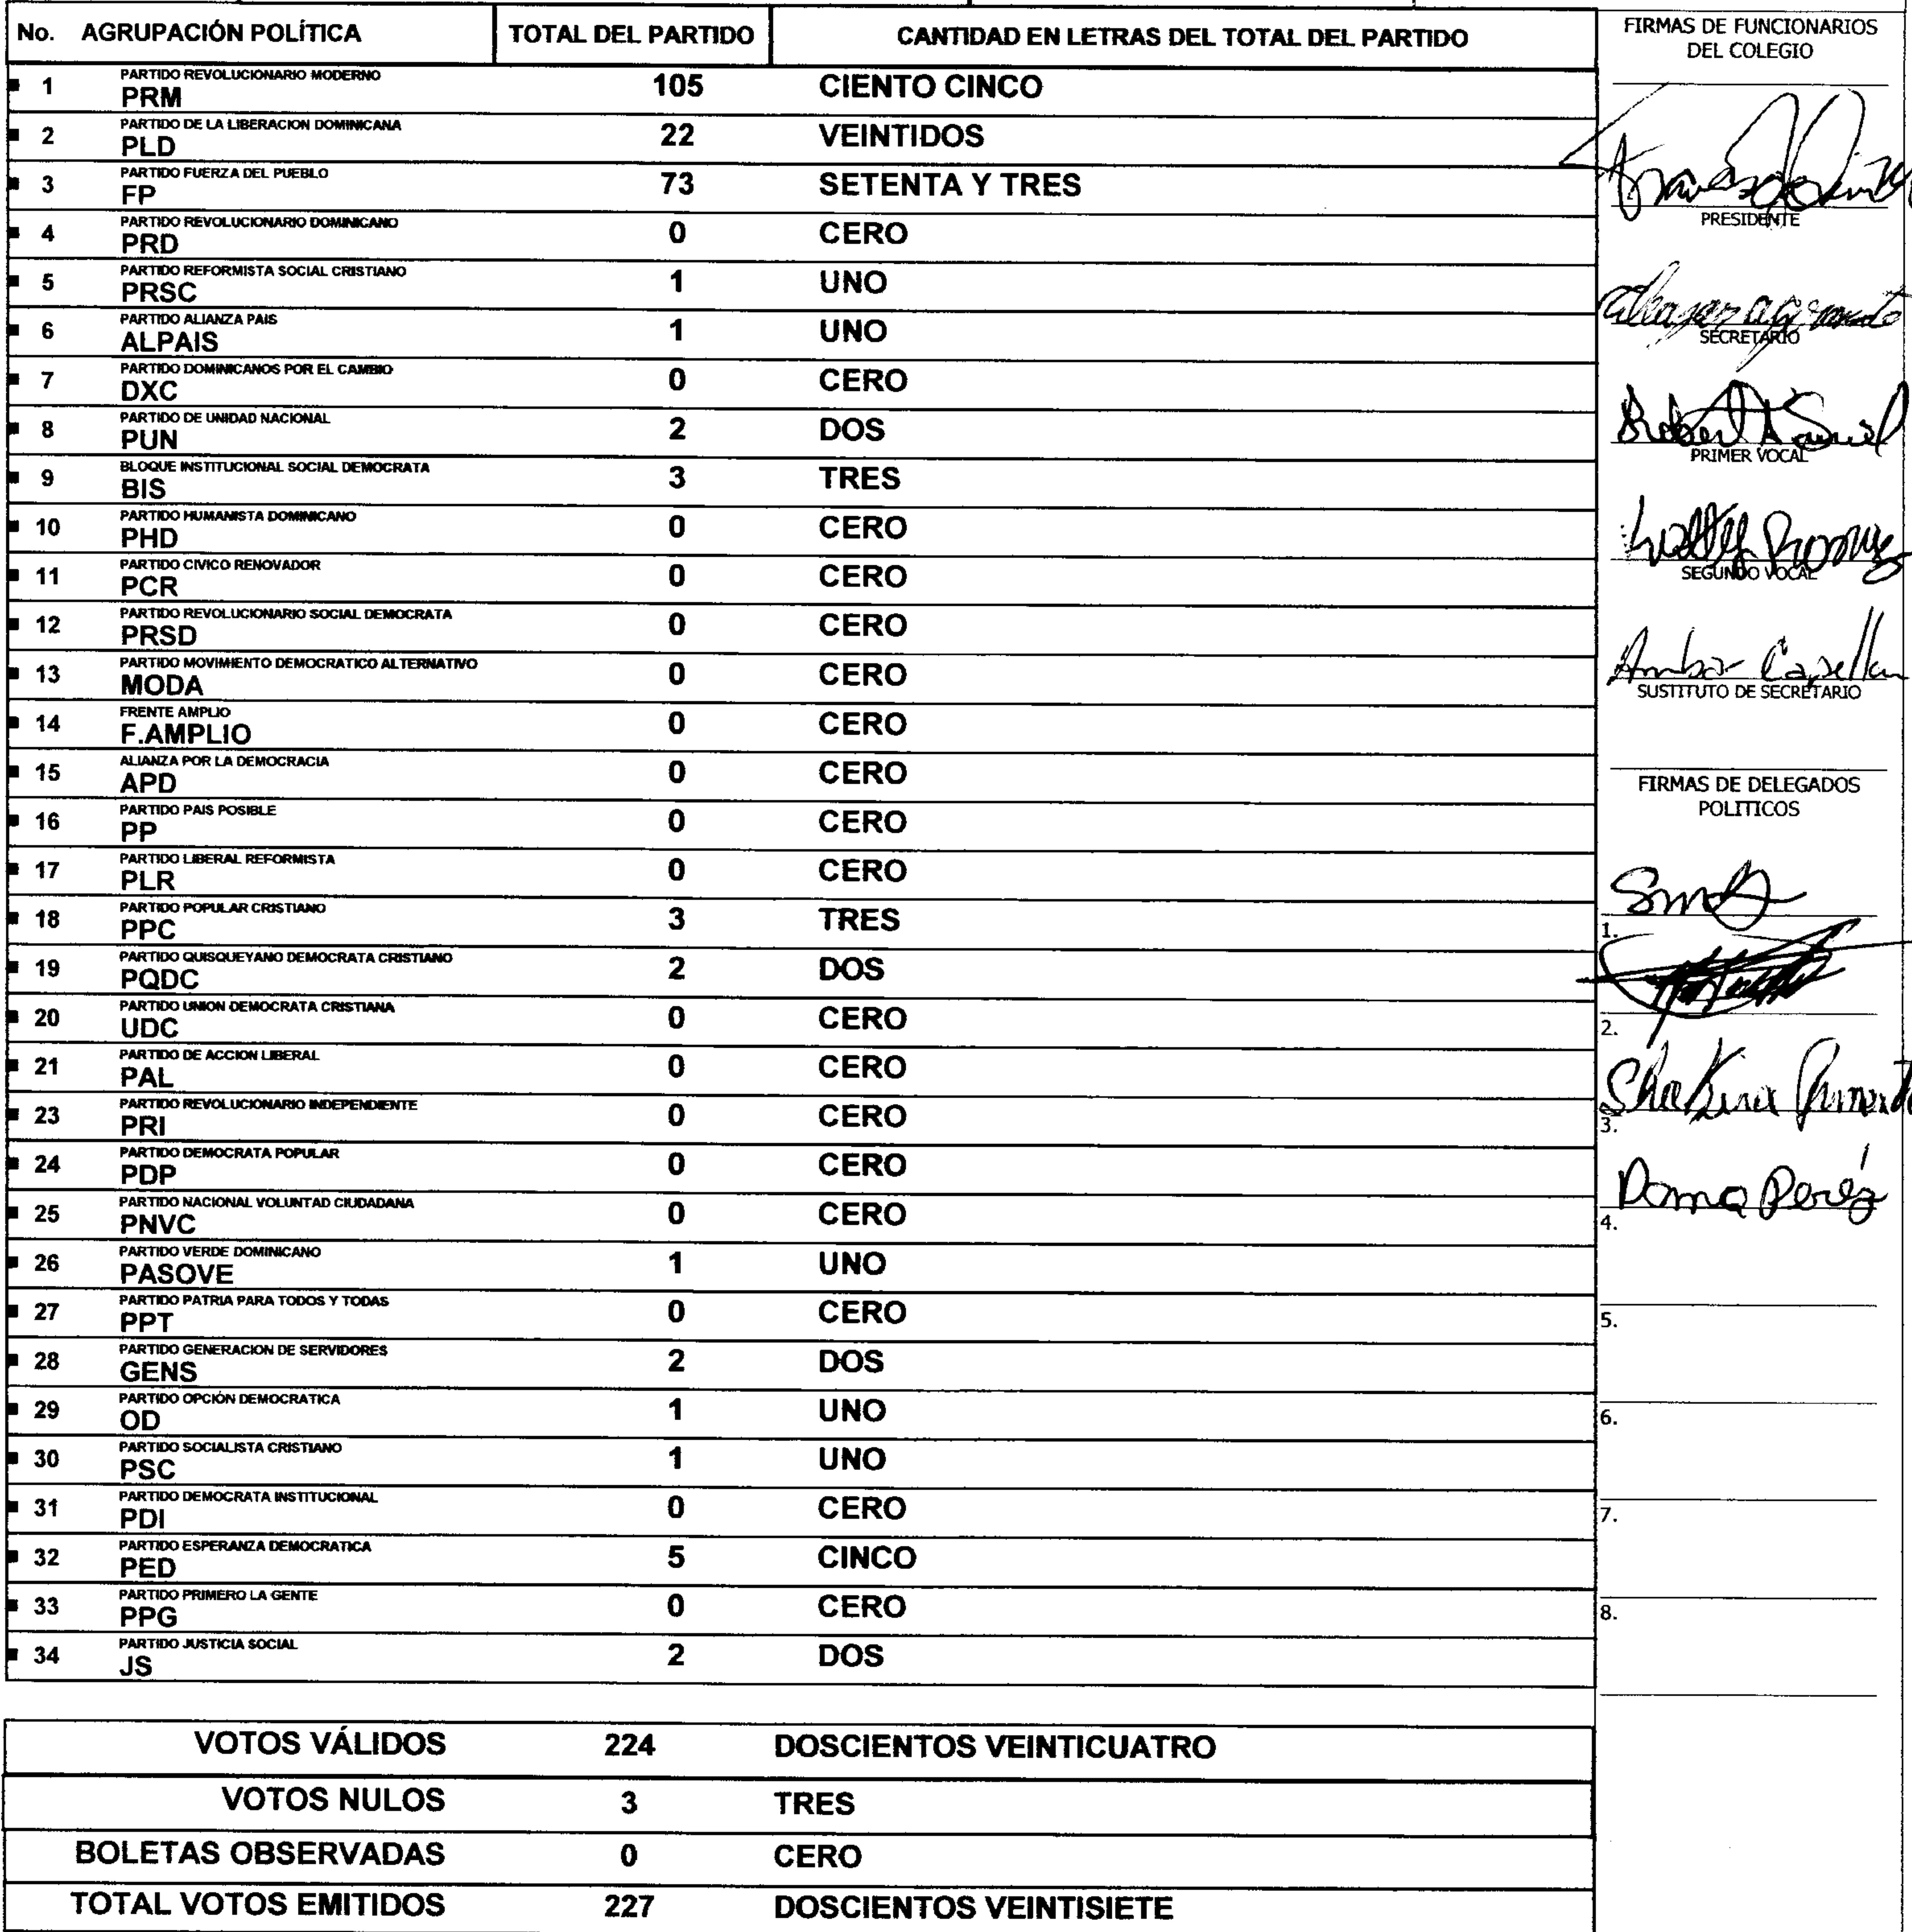 No. AGRUPACIÓN POLÍTICA TOTAL DEL PARTIDO CANTIDAD EN LETRAS DEL TOTAL DEL PARTIDO
PARTIDO REVOLUCIONARIO MODERNO
1 PRM 105 CIENTO CINCO
PARTIDO DE LA LIBERACION DOMINICANA
2 PLD 22 VEINTIDOS
PARTIDO FUERZA DEL PUEBLO
3 FP 73 SETENTA Y TRES
PARTIDO REVOLUCIONARIO DOMINICANO
4 PRD 0 CERO
PARTIDO REFORMISTA SOCIAL CRISTIANO
5 PRSC 1 UNO
PARTIDO ALIANZA PAIS
6 ALPAIS 1 UNO
PARTIDO DOMINICANOS POR EL CAMBIO
7 DXC 0 CERO
PARTIDO DE UNIDAD NACIONAL
8 PUN 2 DOS
BLOQUE INSTITUCIONAL SOCIAL DEMOCRATA
9 BIS 3 TRES
PARTIDO HUMANISTA DOMINICANO
10 PHD 0 CERO
PARTIDO CIVICO RENOVADOR
11 PCR 0 CERO
PARTIDO REVOLUCIONARIO SOCIAL DEMOCRATA
12 PRSD 0 CERO
PARTIDO MOVIMIENTO DEMOCRATICO ALTERNATIVO
13 MODA 0 CERO
FRENTE AMPLIO
14 F.AMPLIO 0 CERO
ALIANZA POR LA DEMOCRACIA
15 APD 0 CERO
PARTIDO PAIS POSIBLE
16 PP 0 CERO
PARTIDO LIBERAL REFORMISTA
17 PLR 0 CERO
PARTIDO POPULAR CRISTIANO
18 PPC 3 TRES
PARTIDO QUISQUEYANO DEMOCRATA CRISTIANO
19 PQDC 2 DOS
PARTIDO UNION DEMOCRATA CRISTIANA
20 UDC 0 CERO
PARTIDO DE ACCION LIBERAL
21 PAL 0 CERO
PARTIDO REVOLUCIONARIO INDEPENDIENTE
23 PRI 0 CERO
PARTIDO DEMOCRATA POPULAR
24 PDP 0 CERO
PARTIDO NACIONAL VOLUNTAD CIUDADANA
25 PNVC 0 CERO
PARTIDO VERDE DOMINICANO
26 PASOVE 1 UNO
PARTIDO PATRIA PARA TODOS Y TODAS
27 PPT 0 CERO
PARTIDO GENERACION DE SERVIDORES
28 GENS 2 DOS
PARTIDO OPCIÓN DEMOCRATICA
29 OD 1 UNO
PARTIDO SOCIALISTA CRISTIANO
30 PSC 1 UNO
PARTIDO DEMOCRATA INSTITUCIONAL
31 PDI 0 CERO
PARTIDO ESPERANZA DEMOCRATICA
32 PED 5 CINCO
PARTIDO PRIMERO LA GENTE
33 PPG 0 CERO
PARTIDO JUSTICIA SOCIAL
34 JS 2 DOS
VOTOS VÁLIDOS 224 DOSCIENTOS VEINTICUATRO
VOTOS NULOS 3 TRES
BOLETAS OBSERVADAS 0 CERO
TOTAL VOTOS EMITIDOS 227 DOSCIENTOS VEINTISIETE
FIRMAS DE FUNCIONARIOS
DEL COLEGIO
PRESIDENTE
SECRETARIO
Robert
PRIMER VOCAL
SEGUNDO VOCAL
Ambar Capellan
SUSTITUTO DE SECRETARIO
FIRMAS DE DELEGADOS
POLITICOS
1.
2.
Shakira
3.
Perez
4.
5.
6.
7.
8.